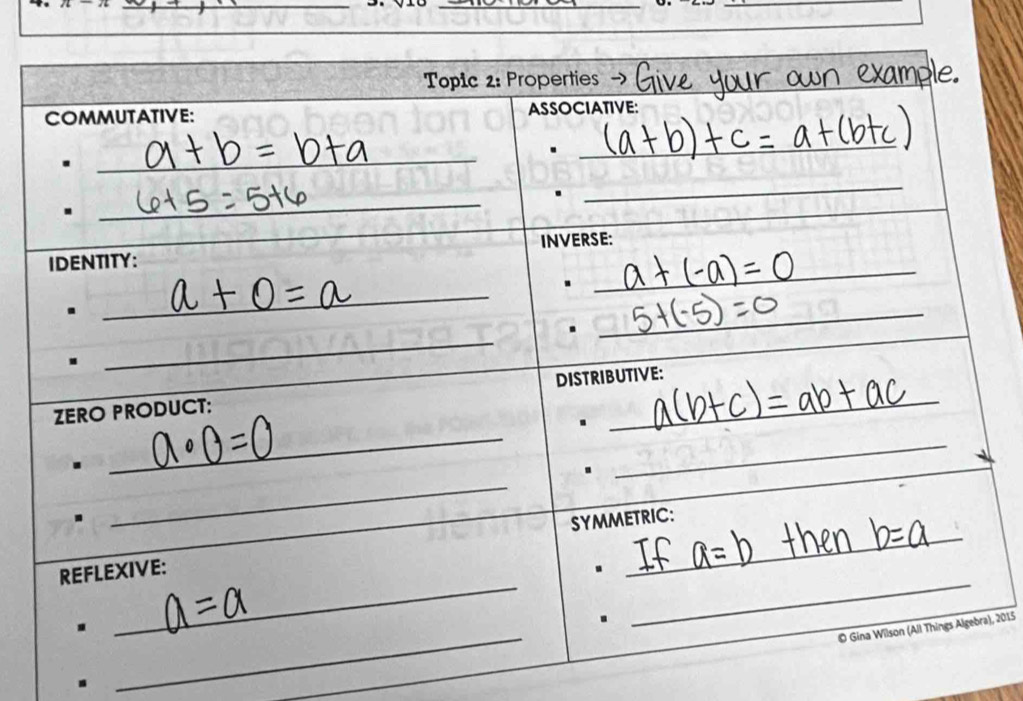 Topic 2: Properties → Give your own example.
COMMUTATIVE:
a + b = b + a
6+5 = 5+6
ASSOCIATIVE:
(a + b) + c = a + (b+c)
IDENTITY:
a + 0 = a
INVERSE:
a + (-a) = 0
5+(-5) = 0
ZERO PRODUCT:
a • 0 = 0
DISTRIBUTIVE:
a(b+c) = ab + ac
REFLEXIVE:
a = a
SYMMETRIC:
If a=b then b=a
© Gina Wilson (All Things Algebra), 2015